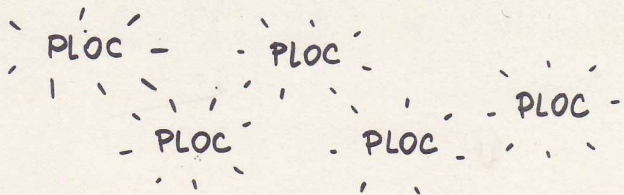 PLOC
PLOC
PLOC
PLOC
PLOC